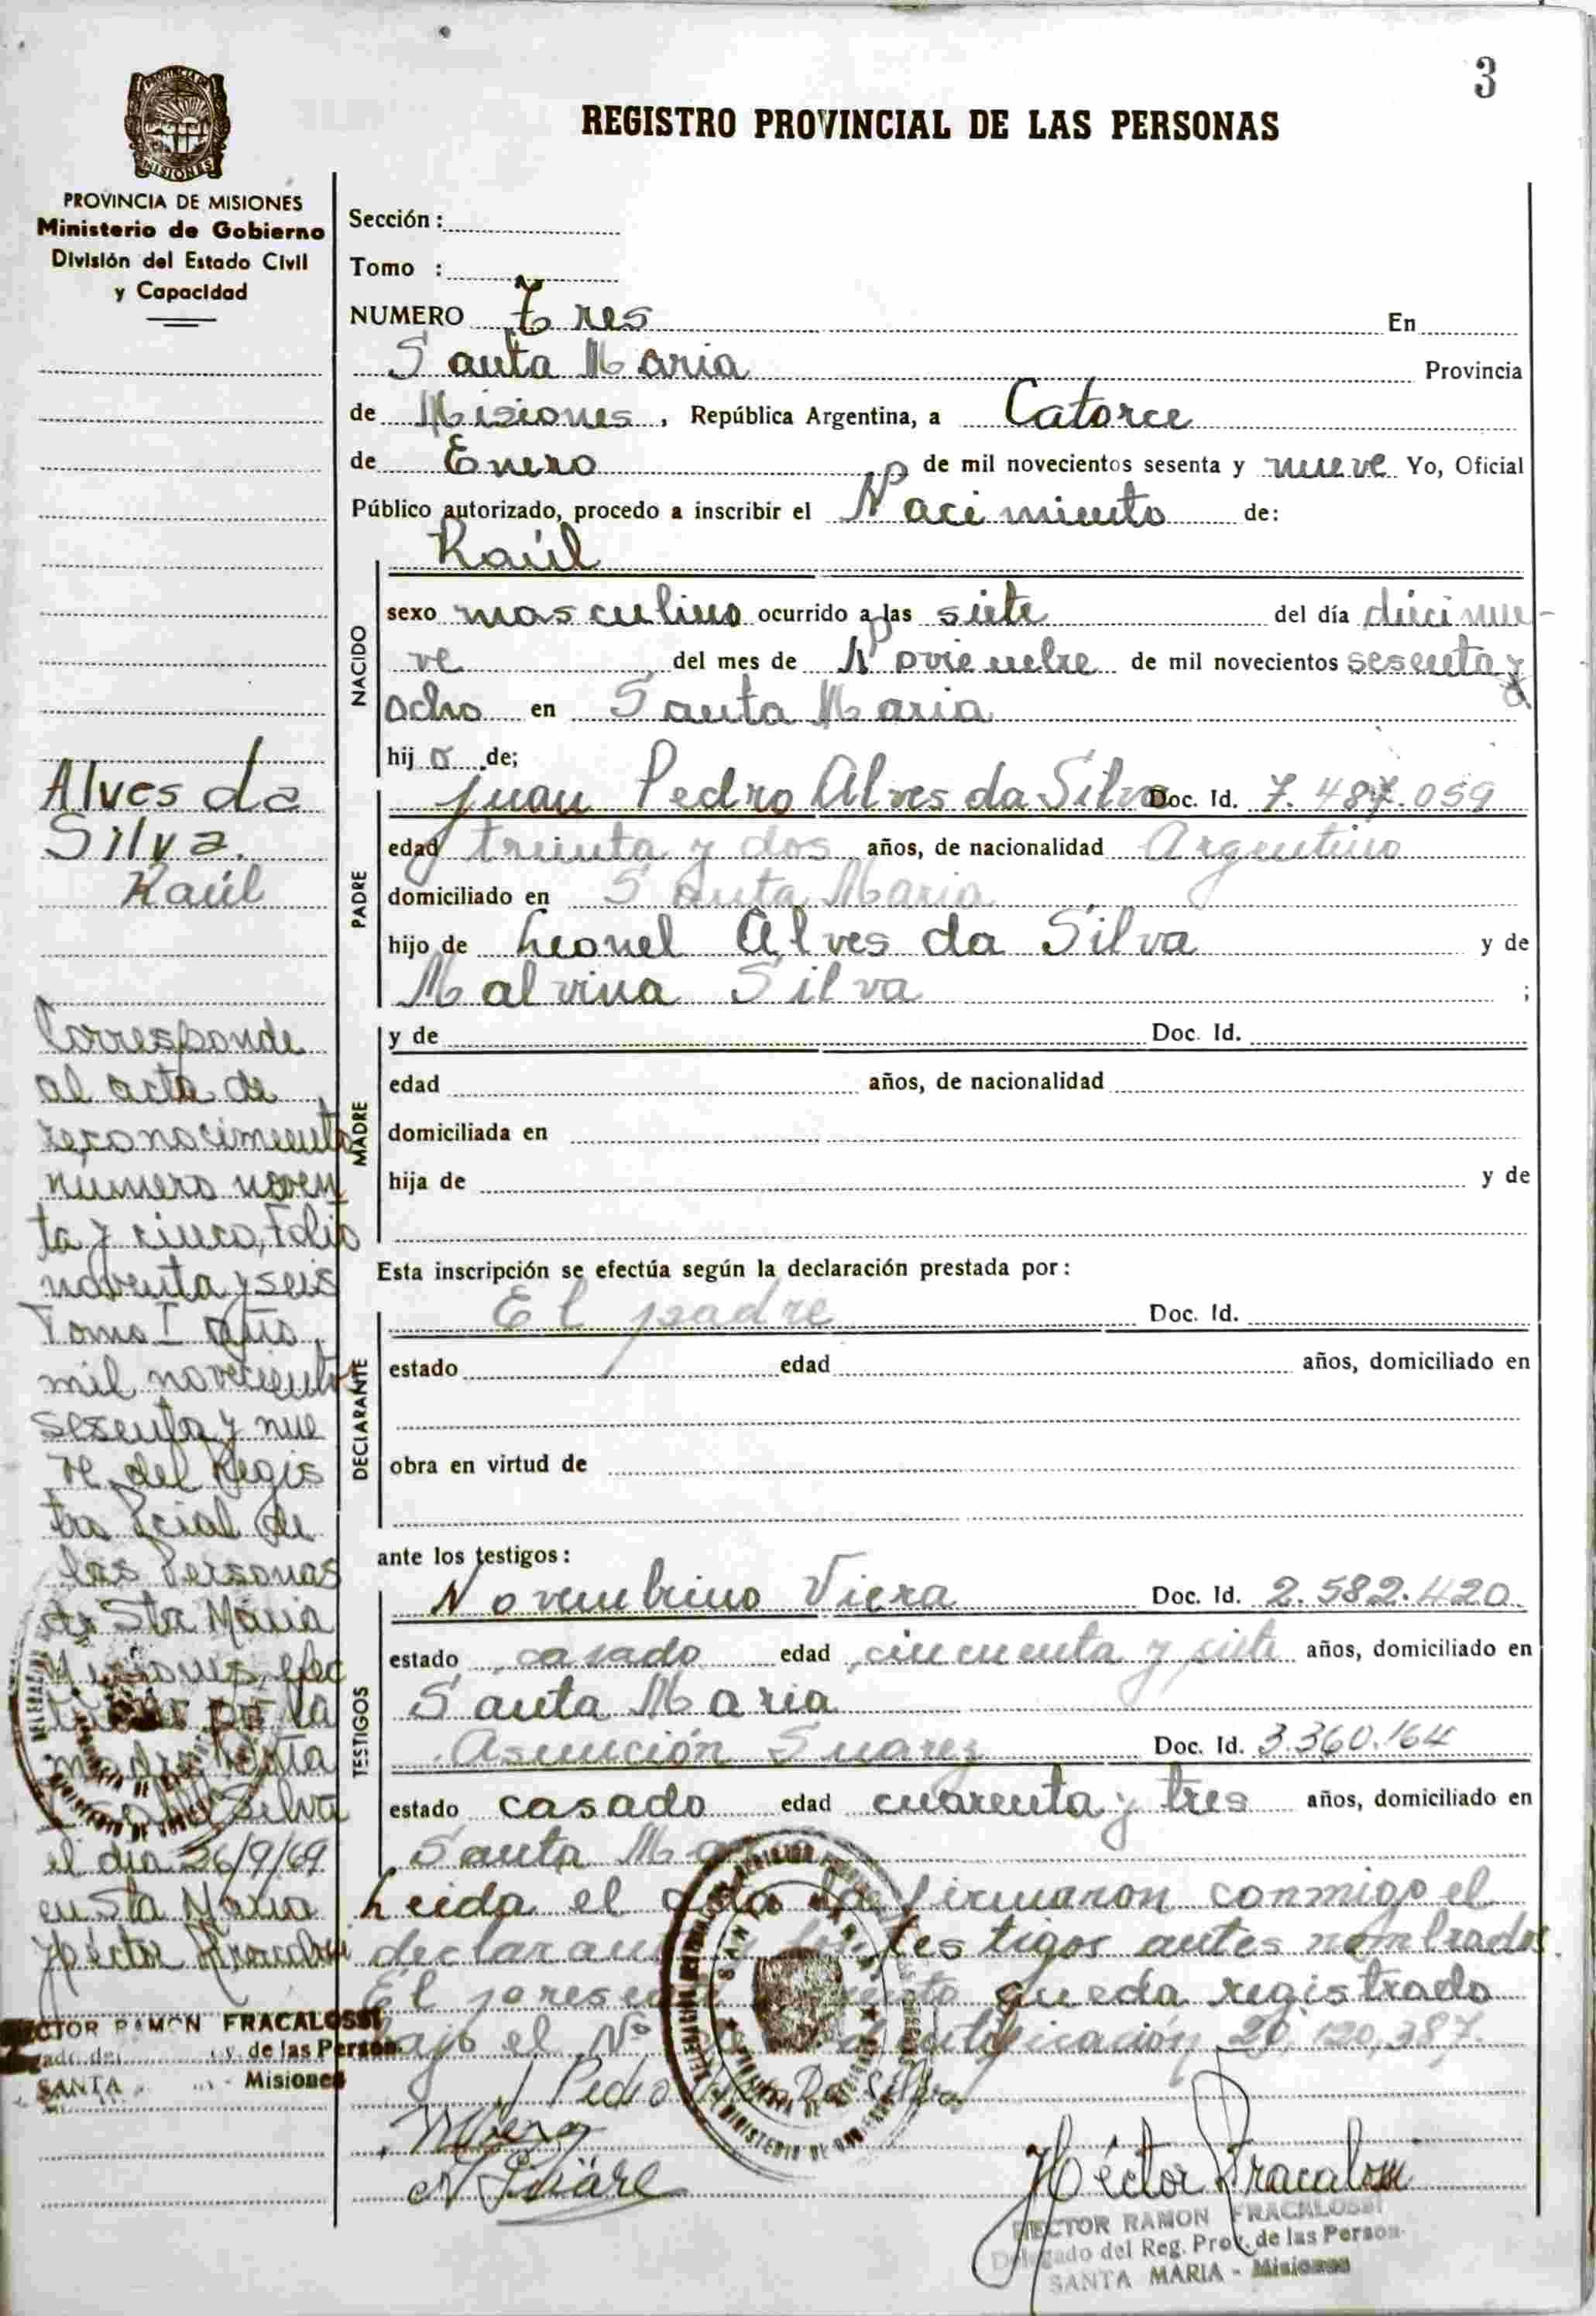 3
REGISTRO PROVINCIAL DE LAS PERSONAS
PROVINCIA DE MISIONES
Ministerio de Gobierno
División del Estado Civil
y Capacidad
Sección :
Tomo :
NUMERO Tres En
Santa Maria Provincia
de Misiones, República Argentina, a Catorce
de Enero de mil novecientos sesenta y nueve Yo, Oficial
Público autorizado, procedo a inscribir el Nacimiento de:
Raúl
NACIDO
sexo masculino ocurrido a las siete del día diecinue-
ve del mes de Noviembre de mil novecientos sesenta y
ocho en Santa Maria
hij o de;
PADRE
Juan Pedro Alves da Silva Doc. Id. 7.487.059
edad treinta y dos años, de nacionalidad Argentino
domiciliado en Santa Maria
hijo de Leonel Alves da Silva y de
Malvina Silva ;
MADRE
y de Doc. Id.
edad años, de nacionalidad
domiciliada en
hija de y de
Esta inscripción se efectúa según la declaración prestada por:
DECLARANTE
El padre Doc. Id.
estado edad años, domiciliado en
obra en virtud de
ante los testigos:
TESTIGOS
Novembrino Viera Doc. Id. 2.582.420
estado casado edad cincuenta y siete años, domiciliado en
Santa Maria
Asunción Suarez Doc. Id. 3.360.164
estado casado edad cuarenta y tres años, domiciliado en
Santa
Leida el firmaron conmigo el
testigos antes nombrados.
El queda registrado
bajo el Nº 20.120.387.
Pedro Da Silva
Héctor Fracalossi
HECTOR RAMON FRACALOSSI
Delegado del Reg. Prov. de las Person.
SANTA MARIA - Misiones
Alves da
Silva.
Raúl
Corresponde
al acta de
reconocimiento
número noven
ta y cinco, Folio
noventa y seis
Tomo I año
mil novecientos
sesenta y nue
ve del Regis
tro Pcial de
las Personas
de Sta Maria
Misiones, efec
por la
madre
Silva
el día 26/9/69
en Sta Maria
Héctor Fracalossi
HECTOR RAMON FRACALOSSI
de las Person.
SANTA Misiones